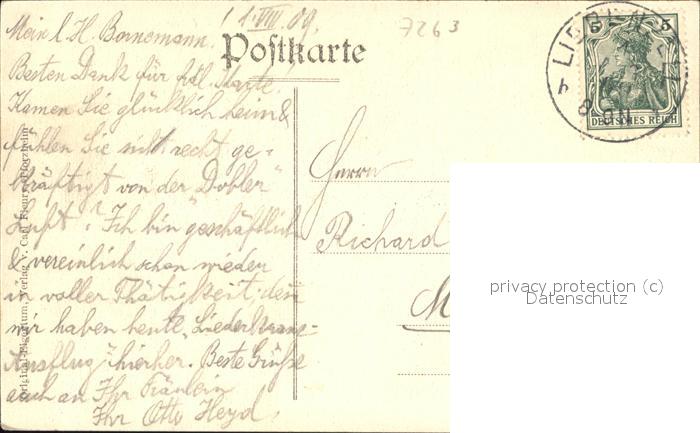 1.VIII.09.
7263
Mein l. H. Bornemann.
Postkarte
Besten Dank für frdl. Karte.
Kamen Sie glücklich heim &
fühlen Sie sich recht ge-
kräftigt von der "Dobler"
Luft? Ich bin geschäftlich
& vereinlich schon wieder
in voller Thätigkeit, denn
wir haben heute "Liederkranz-
Ausflug" hierher. Beste Grüße
auch an Ihr Fräulein
Ihr Otto Heyd.
Original-Eigentum, Verlag v. Carl Pforzheim
5 5
DEUTSCHES REICH
Herrn
Richard
M
privacy protection (c)
Datenschutz